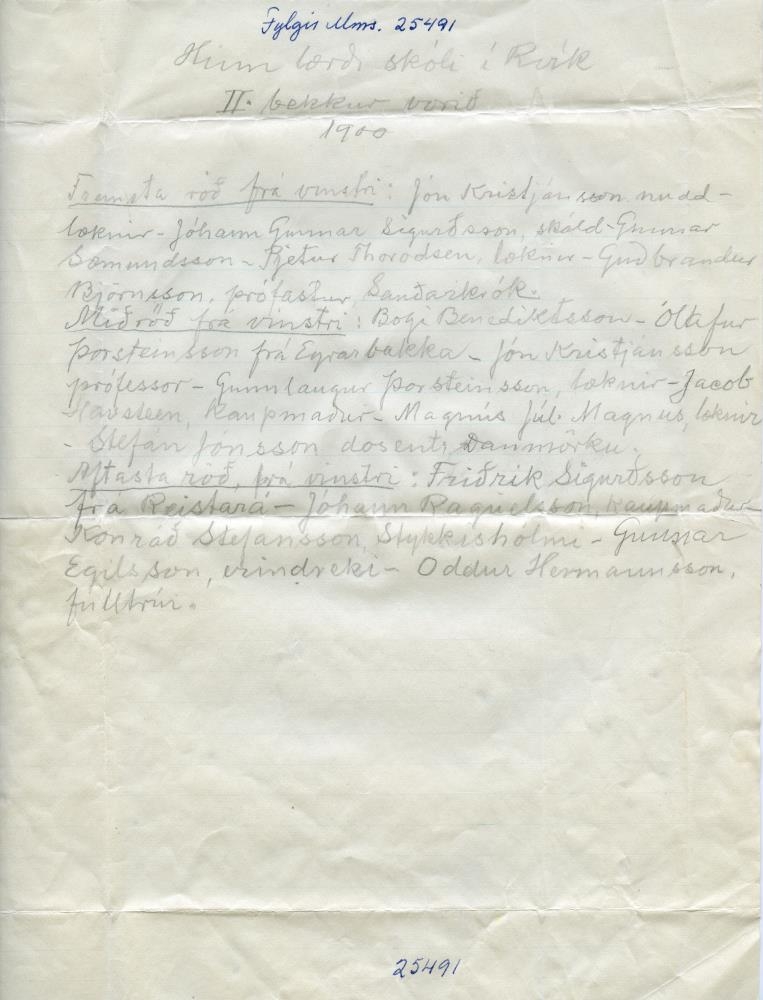 Fylgir Mms. 25491
Hinn lærði skóli í Rvík
II. bekkur vorið
1900
Fremsta röð frá vinstri: Jón Kristjánsson nudd-
læknir - Jóhann Gunnar Sigurðsson, skáld - Gunnar
Sæmundsson - Pjetur Thorodsen, læknir - Guðbrandur
Björnsson, prófastur, Sauðárkrók.
Miðröð frá vinstri: Bogi Benediktsson - Ólafur
Þorsteinsson frá Eyrarbakka - Jón Kristjánsson
prófessor - Gunnlaugur Þorsteinsson, læknir - Jacob
Havsteen, kaupmaður - Magnús Júl. Magnus, læknir
- Stefán Jónsson dosent, Danmörku.
Aftasta röð, frá vinstri: Friðrik Sigurðsson
frá Reistará - Jóhann Raguelsson, kaupmaður -
Konráð Stefánsson, Stykkishólmi - Gunnar
Egilsson, erindreki - Oddur Hermannsson,
fulltrúi.
25491